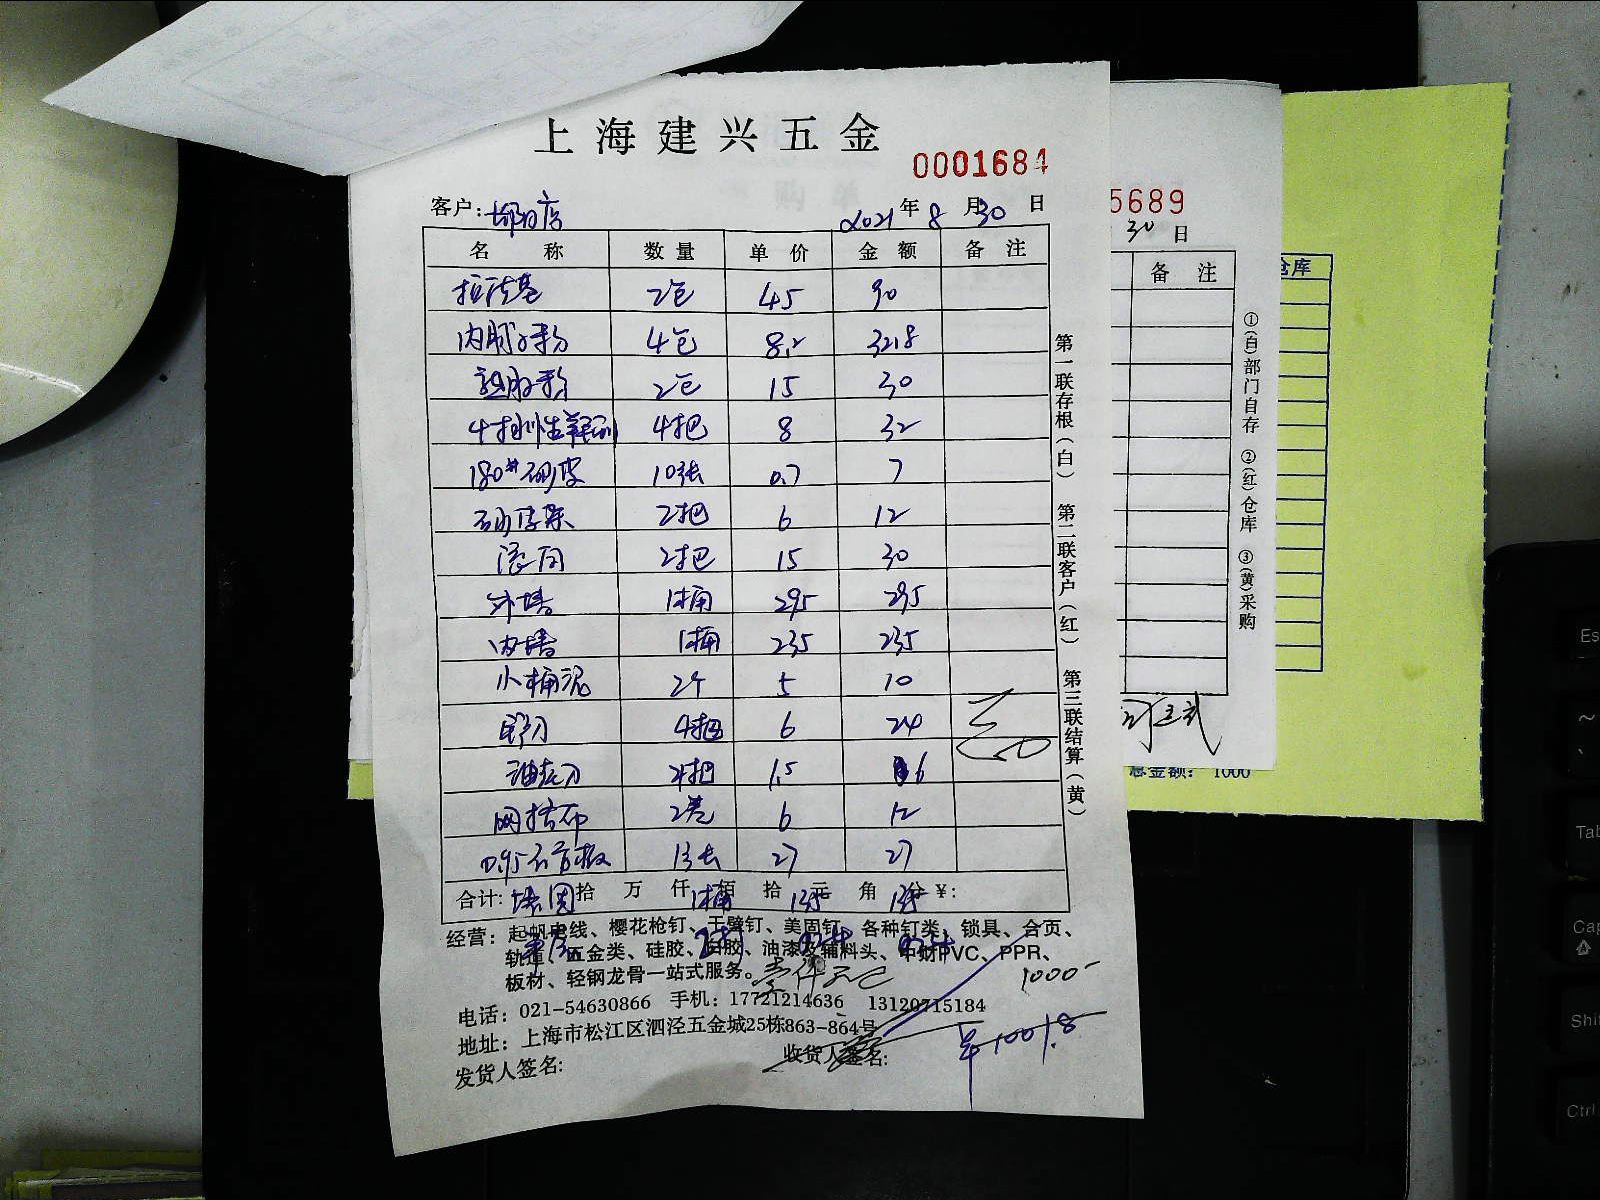 上海建兴五金
0001684
客户: 2021年8月30日
名 称 数量 单价 金额 备注
拉法基 2包 45 90
内 粉 4包 8.2 32.8
粉 2包 15 30
4寸 4把 8 32
180#砂皮 10张 0.7 7
砂皮架 2把 6 12
滚同 2把 15 30
外墙 1桶 295 295
内墙 1桶 235 235
小桶泥 2个 5 10
4把 6 24
油灰刀 4把 1.5 6
网格布 2卷 6 12
0.95石膏板 1张 27 27
合计: 拾 万 仟 佰 拾 元 角 分 ¥:
墙固 1桶 135 135
经营: 起帆电线、樱花枪钉、干壁钉、美固钉、各种钉类、锁具、合页、
轨道、五金类、硅胶、白胶、油漆及辅料头、中财PVC、PPR、
板材、轻钢龙骨一站式服务。
1000-
电话: 021-54630866 手机: 17721214636 13120715184
地址: 上海市松江区泗泾五金城25栋863-864号
发货人签名: 收货人签名:
¥1001.8
第一联存根(白) 第二联客户(红) 第三联结算(黄)
5689
30日
备注
①(白)部门自存 ②(红)仓库 ③(黄)采购
仓库
总金额: 1000
Es
~
Tab
Cap
Shi
Ctrl